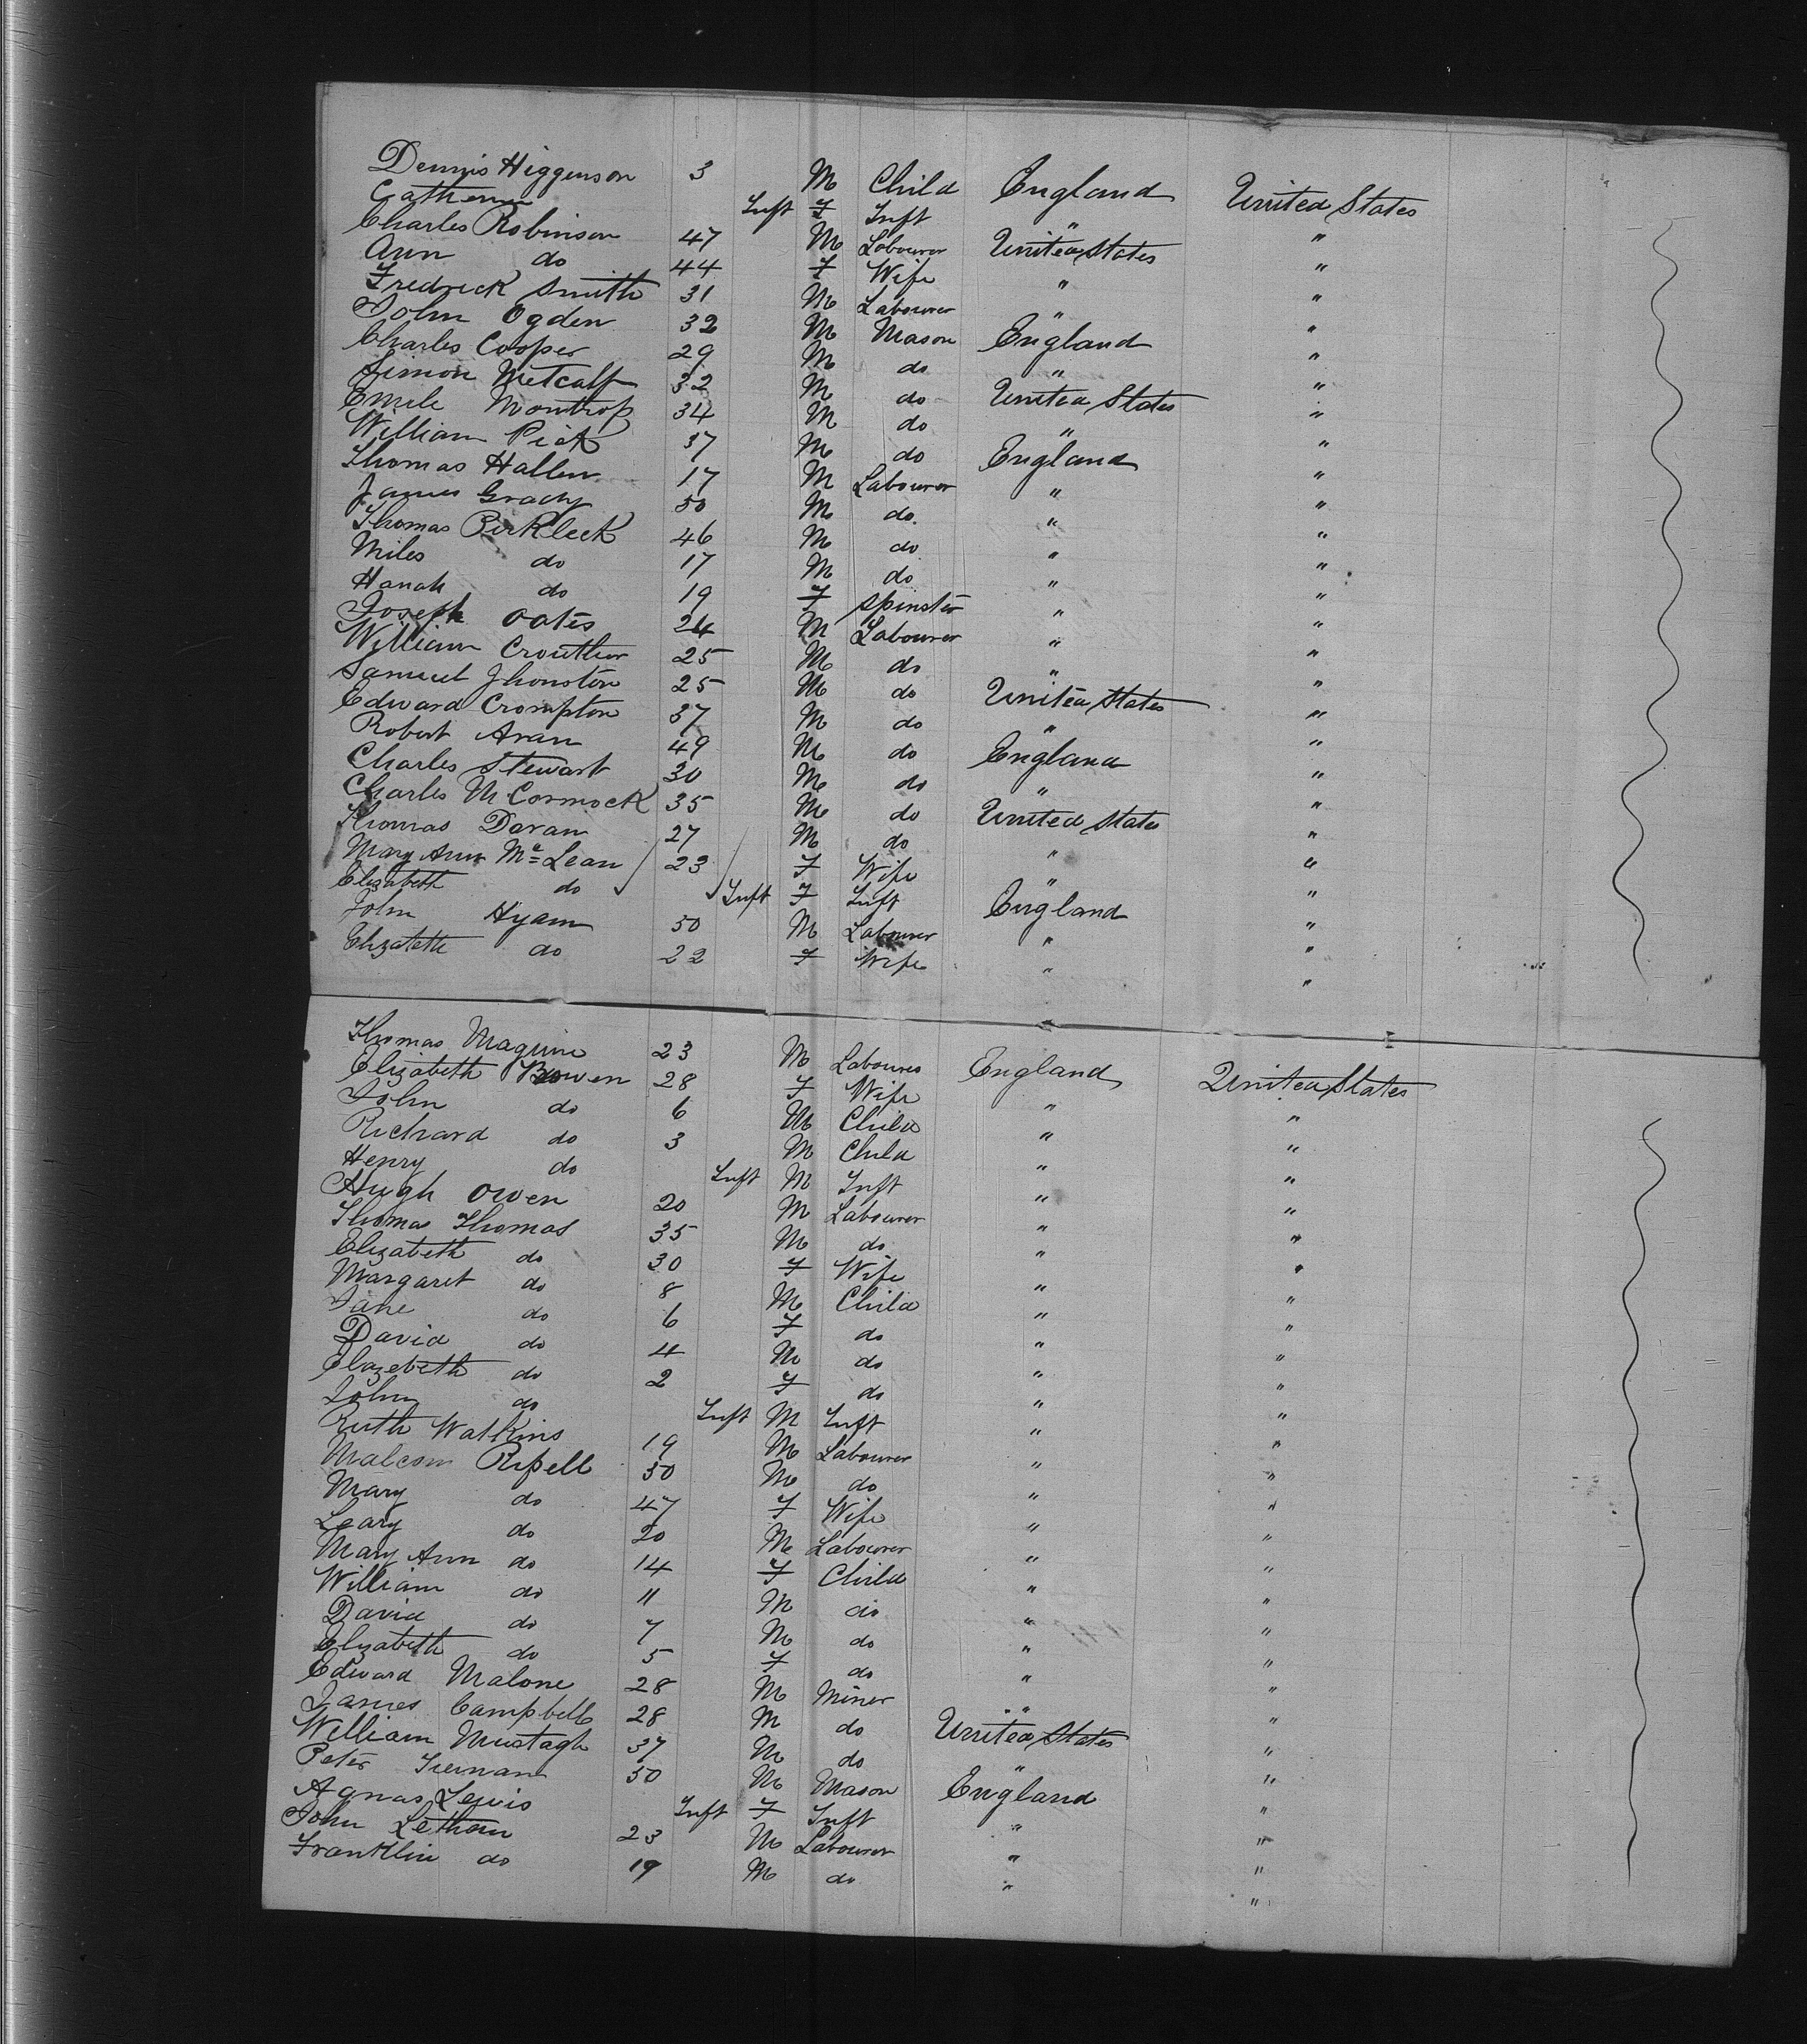 Dennis Higgenson 3 M Child England United States
Catherine Inft F Inft " "
Charles Robinson 47 M Labourer United States "
Ann do 44 F Wife " "
Fredrick Smith 31 M Labourer " "
John Ogden 32 M Mason England "
Charles Cooper 29 M do " "
Simon Metcalf 32 M do United States "
Emile Montrop 34 M do " "
William Pick 37 M do England "
Thomas Hallen 17 M Labourer " "
James Grady 50 M do " "
Thomas Birkleck 46 M do " "
Miles do 17 M do " "
Hanah do 19 F Spinster " "
Joseph Oates 24 M Labourer " "
William Crouther 25 M do " "
Samuel Jhonston 25 M do United States "
Edward Crompton 37 M do " "
Robert Aran 49 M do England "
Charles Stewart 30 M do " "
Charles McCormock 35 M do United States "
Thomas Doran 27 M do " "
Mary Ann Mc Lean 23 F Wife " "
Elizabeth do Inft F Inft England "
John Hyam 50 M Labourer " "
Elizabeth do 22 F Wife " "
Thomas Maguire 23 M Labourer England United States
Elizabeth Bowen 28 F Wife " "
John do 6 M Child " "
Richard do 3 M Child " "
Henry do Inft M Inft " "
Hugh Owen 20 M Labourer " "
Thomas Thomas 35 M do " "
Elizabeth do 30 F Wife " "
Margaret do 8 M Child " "
Jane do 6 F do " "
David do 4 M do " "
Elazebeth do 2 F do " "
John do Inft M Inft " "
Ruth Watkins 19 M Labourer " "
Malcom Rissell 50 M do " "
Mary do 47 F Wife " "
Leary do 20 M Labourer " "
Mary Ann do 14 F Child " "
William do 11 M do " "
David do 7 M do " "
Elizabeth do 5 F do " "
Edward Malone 28 M Miner " "
James Campbell 28 M do United States "
William Murtagh 37 M do " "
Peter Tiernan 50 M Mason England "
Agnas Lewis Inft F Inft " "
John Lethom 23 M Labourer " "
Franklin do 19 M do " "